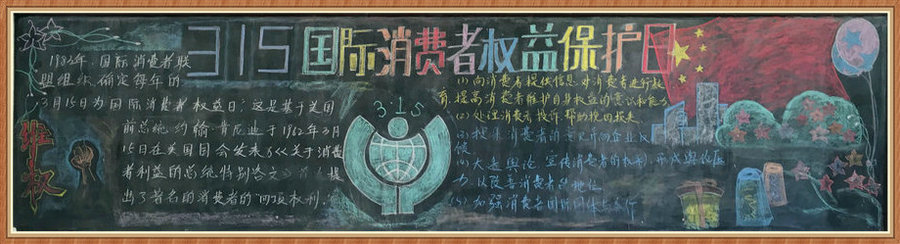 315国际消费者权益保护日
1983年,国际消费者联
盟组织确定每年的
3月15日为国际消费者权益日;这是基于美国
前总统约翰肯尼迪于1962年3月
15日在美国国会发表《关于消费
者利益的总统特别咨文
出了著名的消费者的"四项权利"
维权
315
(1)向消费者提供信息,对消费者进行教
育,提高消费者维护自身权益的意识和能力
(2)处理消费者投诉,帮助挽回损失
(3)搜集消费者的意见
(4)大造舆论,宣传消费者的权利,形成舆论压
力,以改善消费者的地位
(5)加强消费者国际团体